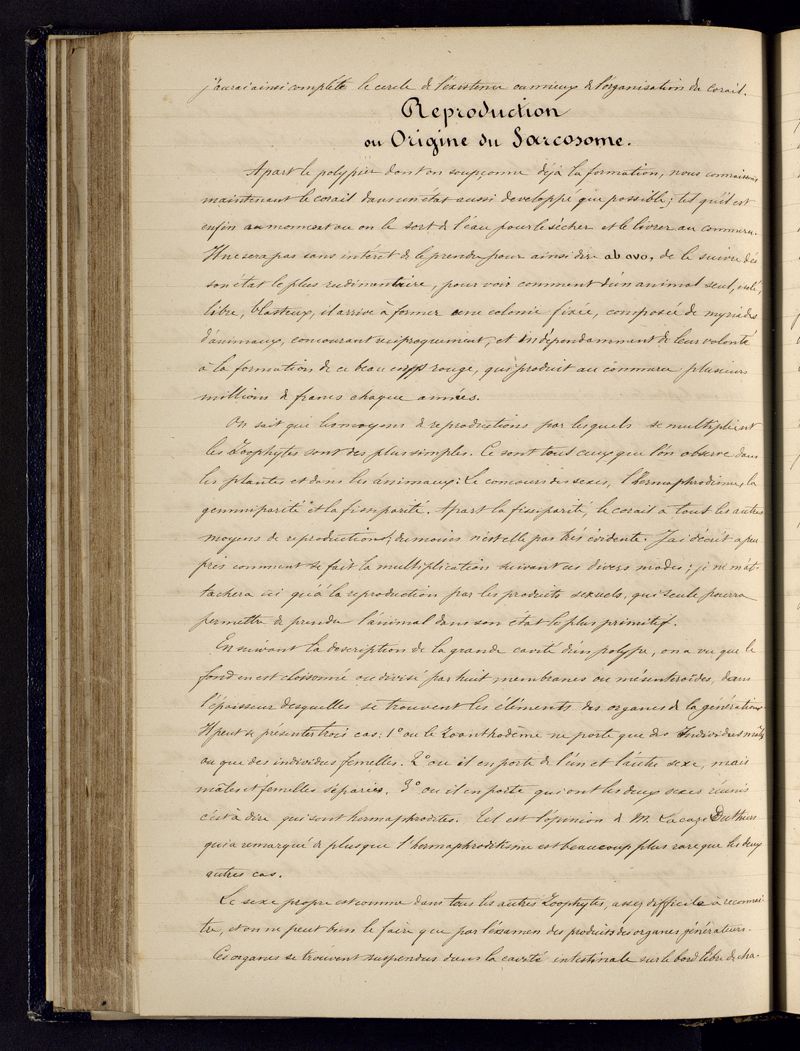 j'aurai ainsi complété le cercle de l'existence ou mieux de l'organisation du corail.
Reproduction
ou Origine du Sarcosome.
Apart le polypier dont on soupçonne déjà la formation, nous connaissons
maintenant le corail dans un état aussi developpé que possible; tel qu'il est
enfin au moment ou on le sort de l'eau pour le sécher et le livrer au commerce.
Il ne sera pas sans intérêt de le prendre pour ainsi dire ab ovo, de le suivre dès
son état le plus rudimentaire, pour voir comment d'un animal seul, isolé,
libre, blasteux, il arrive à former une colonie fixée, composée de myriades
d'animaux, concourant réciproquement, et indépendamment de leur volonté
à la formation de ce beau corps rouge, qui produit au commerce plusieurs
millions de francs chaque années.
On sait que les moyens de reproductions par lesquels se multiplient
les Zoophytes sont des plus simples. Ce sont tous ceux que l'on observe dans
les plantes et dans les animaux: Le concours des sexes, l'hermaphrodisme, la
gemmiparité et la fissiparité. Apart la fissiparité, le corail a tous les autres
moyens de reproductions, du moins n'est elle pas très évidente. J'ai décrit a peu
près comment se fait la multiplication suivant ces divers modes; je ne m'at-
tachera ici qu'à la reproduction par les produits sexuels, qui seule pourra
permettre de prendre l'animal dans son état le plus primitif.
En suivant la description de la grande cavité d'un polype, on a vu que le
fond en est cloisonné ou divisé par huit membranes ou mésenteroïdes, dans
l'épaisseur desquelles se trouvent les éléments des organes de la générations.
Il peut se présenter trois cas: 1° ou le Zoanthodème ne porte que des Individues mâles
ou que des individus femelles. 2° ou il en porte de l'un et l'autre sexe, mais
mâles et femelles séparées. 3° ou il en porte qui ont les deux sexes réunis
c'est à dire qui sont hermaphrodites. Tel est l'opinion de M. Lacaze Duthiers
qui a remarqué de plus que l'hermaphroditisme est beaucoup plus rare que les deux
autres cas.
Le sexe propre est comme dans tous les autres Zoophytes, assez difficile a reconnaî-
tre, et on ne peut bien le faire que par l'éxamen des produits des organes générateurs.
Ces organes se trouvent suspendus dans la cavité intestinale sur le bord libre de cha-